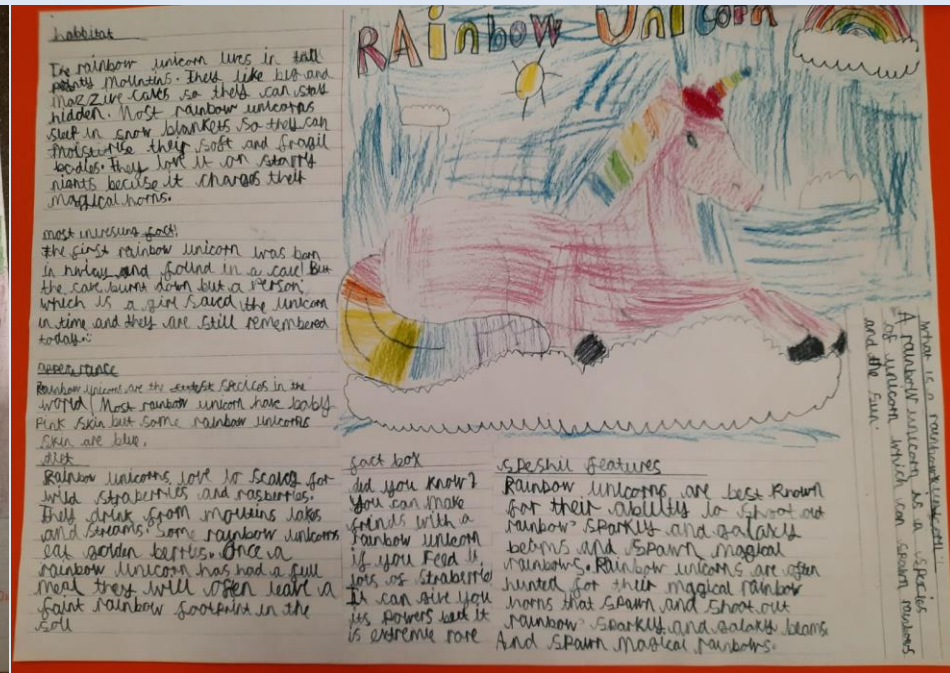 RAinbow Unicorn
habbitat
The rainbow unicorn lives in tall
pointy mountins. They like big and
mazzive caves so they can stay
hidden. Most rainbow unicorns
sleep in snow blankets so they can
moisturise their soft and fragil
bodies. They love it on starry
nights becuse it charges their
magical horns.
most intresting fact!
the first rainbow unicorn was born
in and found in a cave! But
the cave burnt down but a person
which is a girl saved the unicorn
in time and they are still remembered
today
apperance
Rainbow unicorns are the species in the
world! Most rainbow unicorn have baby
pink skin but some rainbow unicorns
skin are blue.
diet
Rainbow unicorns love to for
wild straberries and rasberries.
They drink from moutins lakes
and streams. Some rainbow unicorns
eat golden berries. Once a
rainbow unicorn has had a full
meal they will often leave a
faint rainbow footprint in the
soil
fact box
did you know?
you can make
frinds with a
rainbow unicorn
if you feed it
lots of straberries
It can give you
its powers but it
is extreme rare
speshil features
Rainbow unicorns are best known
for their ability to shoot out
rainbow sparkly and galaxy
beams and spawn magical
rainbows. Rainbow unicorns are often
hunted for their magical rainbow
horns that spawn and shoot out
rainbow sparkly and galaxy beams
And spawn magical rainbows.
what is a rainbow unicorn?
A rainbow unicorn is a species
of unicorn which can spawn rainbows
and the sun.